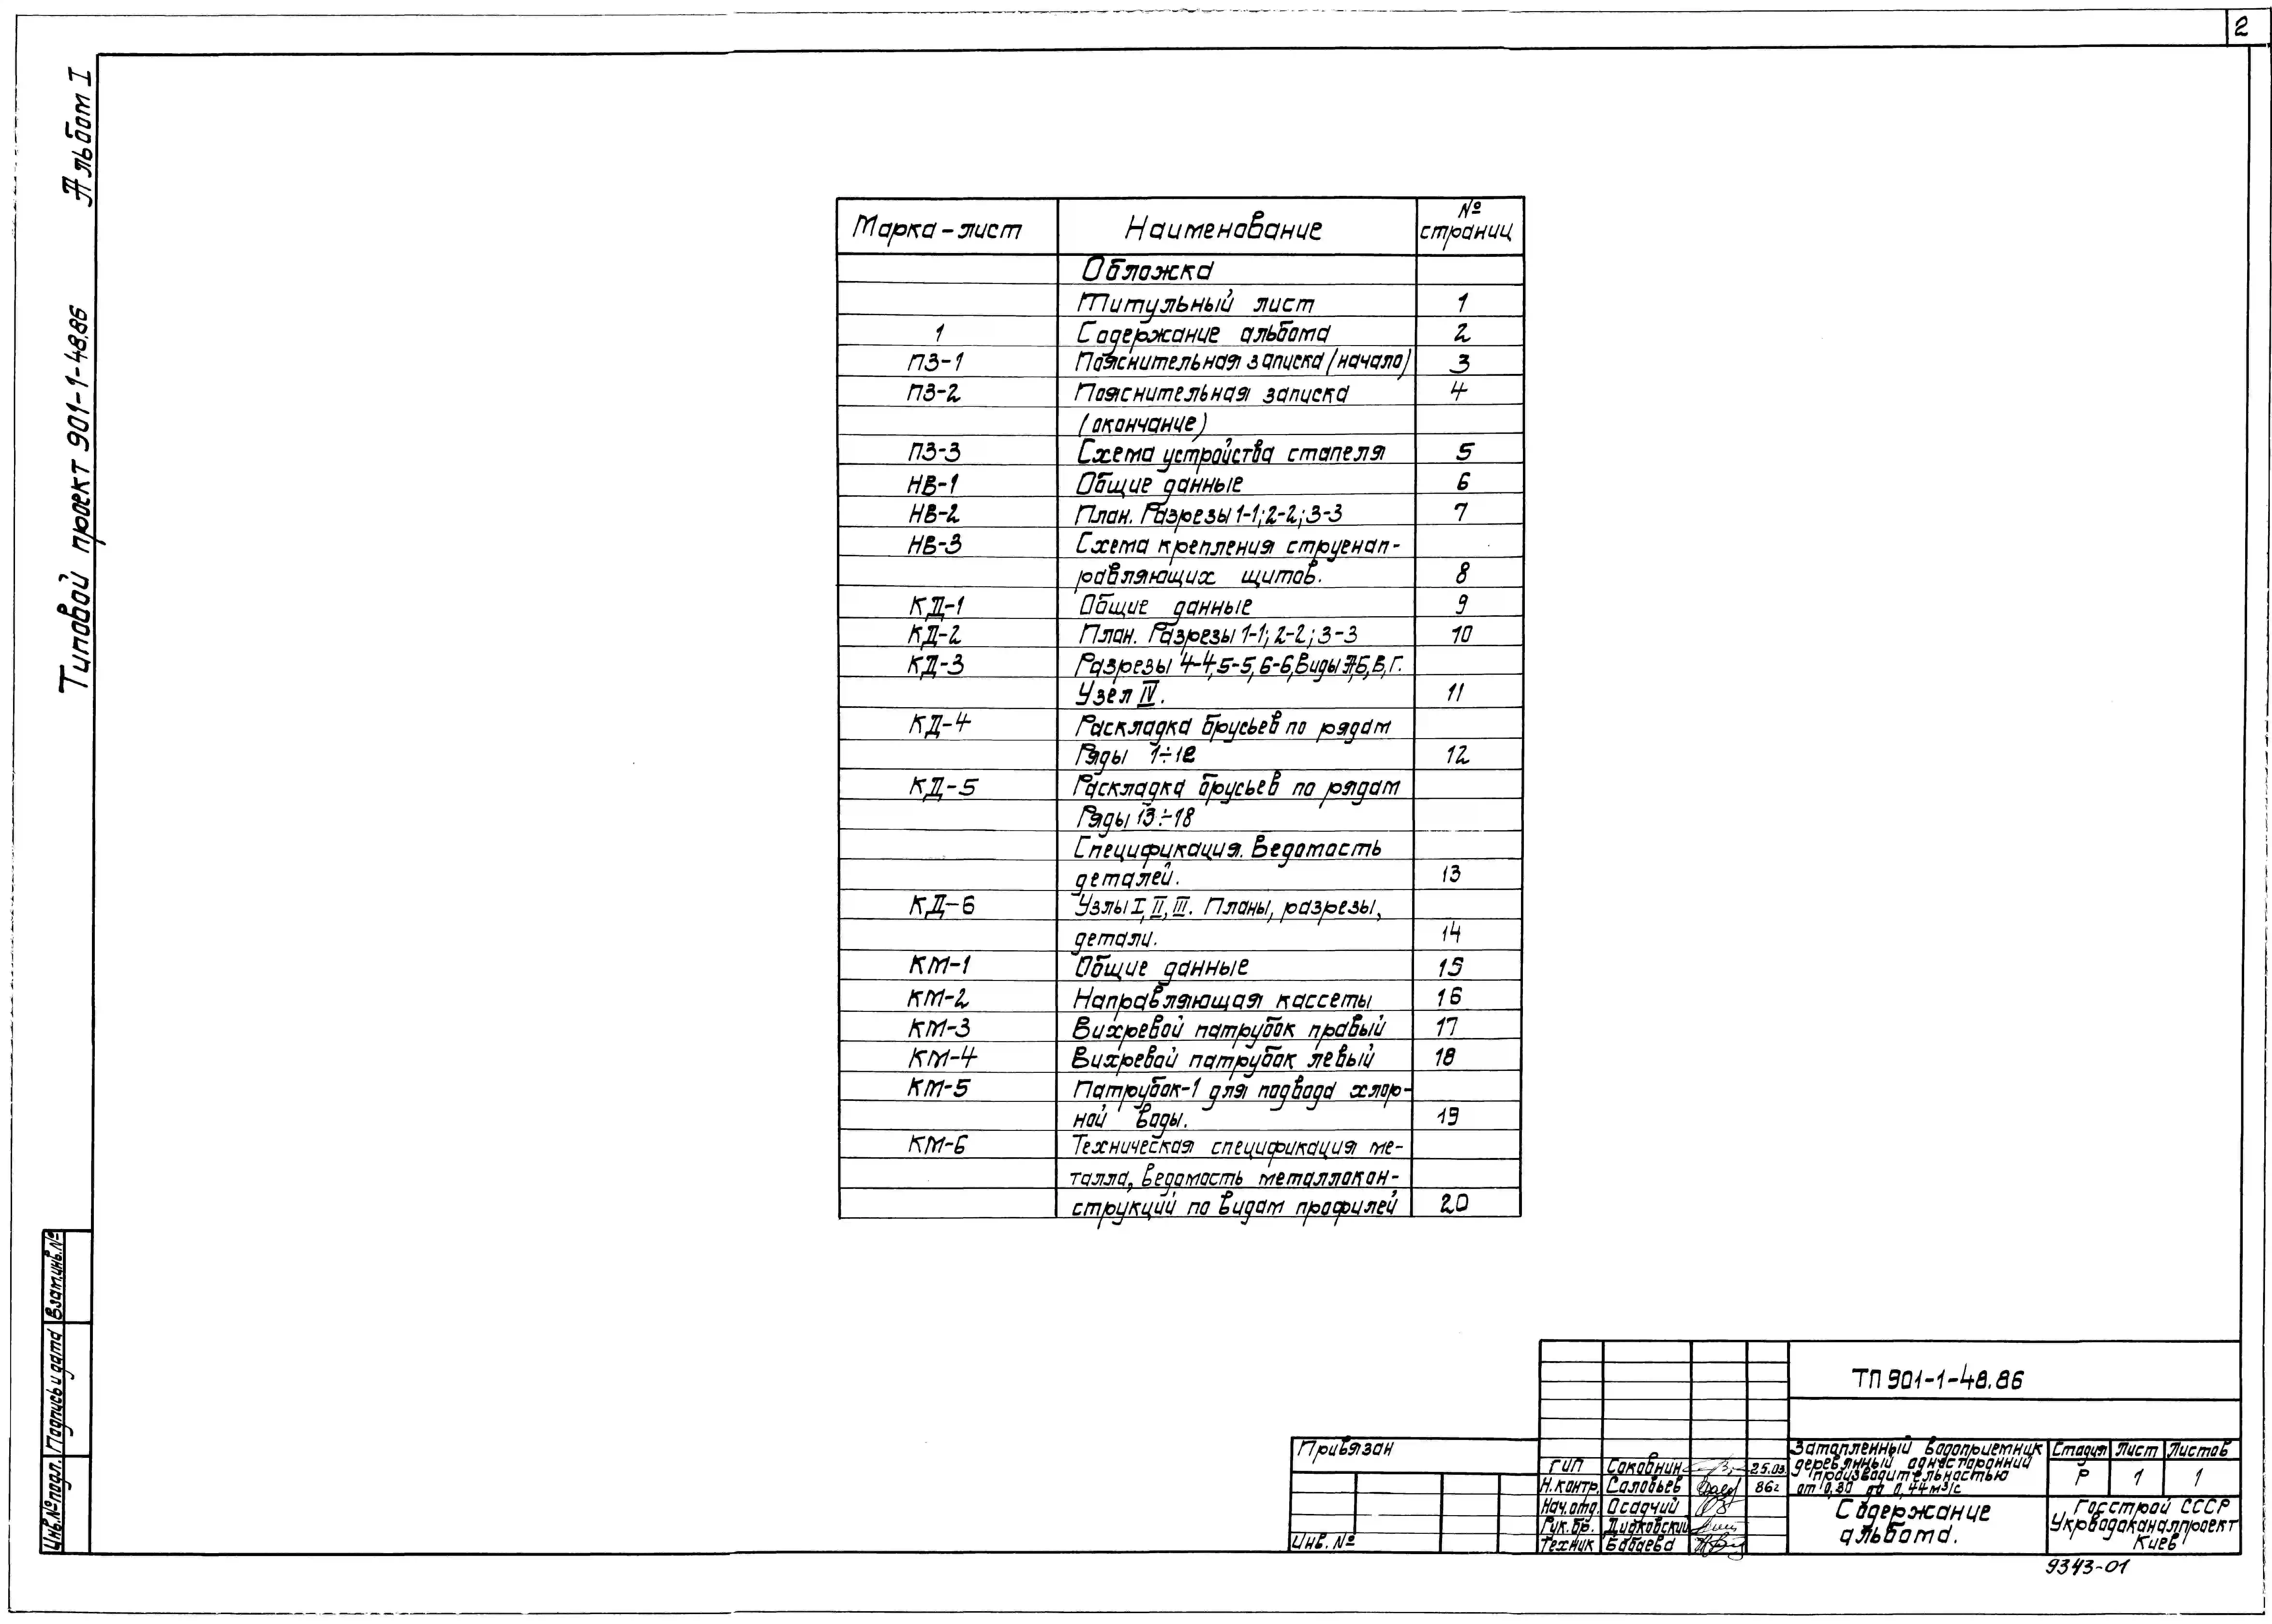 2
Альбом I
Типовой проект 901-1-48.86
Марка-лист Наименование № страниц
Обложка
Титульный лист 1
1 Содержание альбома 2
ПЗ-1 Пояснительная записка (начало) 3
ПЗ-2 Пояснительная записка 4
(окончание)
ПЗ-3 Схема устройства стапеля 5
НВ-1 Общие данные 6
НВ-2 План. Разрезы 1-1; 2-2; 3-3 7
НВ-3 Схема крепления струенап-
равляющих щитов. 8
КД-1 Общие данные 9
КД-2 План. Разрезы 1-1; 2-2; 3-3 10
КД-3 Разрезы 4-4, 5-5, 6-6, Виды А, Б, В, Г.
Узел IV. 11
КД-4 Раскладка брусьев по рядам
Ряды 1÷12 12
КД-5 Раскладка брусьев по рядам
Ряды 13÷18
Спецификация. Ведомость
деталей. 13
КД-6 Узлы I, II, III. Планы, разрезы,
детали. 14
КМ-1 Общие данные 15
КМ-2 Направляющая кассеты 16
КМ-3 Вихревой патрубок правый 17
КМ-4 Вихревой патрубок левый 18
КМ-5 Патрубок-1 для подвода хлор-
ной воды. 19
КМ-6 Техническая спецификация ме-
талла, ведомость металлокон-
струкций по видам профилей 20
Взам.инв.№
Подпись и дата
Инв.№ подл.
ТП 901-1-48.86
Привязан
Инв. №
ГИП Соковнин 25.03.
Н.контр. Соловьев 86г
Нач.отд. Осадчий
Рук.бр. Дидковский
Техник Бабаева
Затопленный водоприемник
деревянный односторонний
производительностью
от 0,30 до 0,44 м3/с
Стадия Лист Листов
Р 1 1
Содержание
альбома.
Госстрой СССР
Укрводоканалпроект
Киев
9343-01